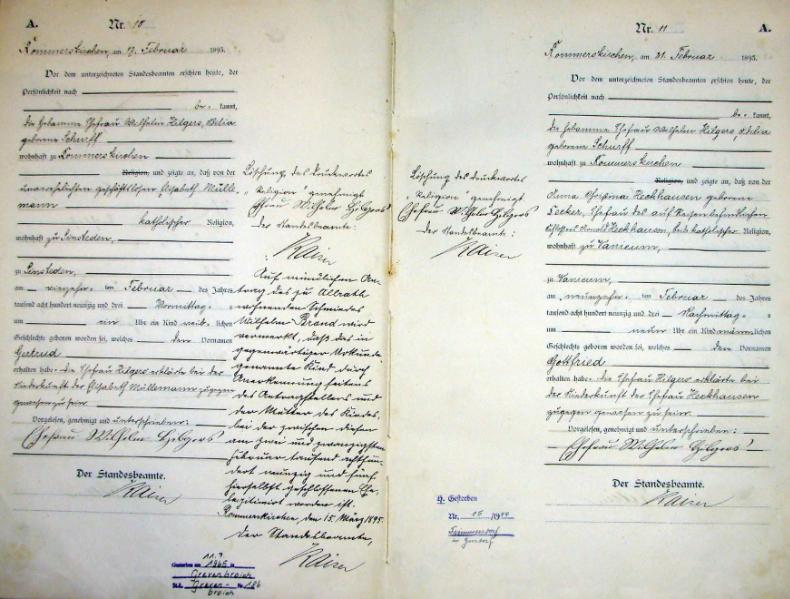 A.
Nr. 10
Rommerskirchen, am 17. Februar 1893.
Vor dem unterzeichneten Standesbeamten erschien heute, der
Persönlichkeit nach
be- kannt,
die Hebamme Ehefrau Wilhelm Hilgers,
geborene Schurff
wohnhaft zu Rommerskirchen
Religion, und zeigte an, daß von der
unverehelichten geschäftslosen Elisabeth Mülle-
mann
katholischer Religion,
wohnhaft zu Ensteden,
zu Ensteden,
am vierzehn- ten Februar des Jahres
tausend acht hundert neunzig und drei Vormittags
um ein Uhr ein Kind weib- lichen
Geschlechts geboren worden sei, welches den Vornamen
Gertrud
erhalten habe. die Ehefrau Hilgers erklärte bei der
Niederkunft der Elisabeth Müllemann zugegen
gewesen zu sein.
Vorgelesen, genehmigt und unterschrieben:
Ehefrau Wilhelm Hilgers
Der Standesbeamte.
Kaiser
Löschung des Druckwortes
"Religion" genehmigt
Ehefrau Wilhelm Hilgers
der Standesbeamte:
Kaiser
Auf mündlichen An-
trag des zu Allrath
wohnenden Schmiedes
Wilhelm Brand wird
vermerkt, daß das in
gegenwärtiger Urkunde
genannte Kind durch
Anerkennung seitens
des Antragstellers und
der Mutter des Kindes
bei der zwischen diesen
am zwei und zwanzigsten
Februar tausend achthun-
dert neunzig und fünf
hierselbst geschlossenen Ehe
legitimirt worden ist.
Rommerskirchen, den 15. März 1895.
Der Standesbeamte,
Kaiser
Gestorben am 11.7.1965 in
Grevenbroich
Greven-
broich
Nr. 11
A.
Rommerskirchen, am 21. Februar 1893.
Vor dem unterzeichneten Standesbeamten erschien heute, der
Persönlichkeit nach
be- kannt,
die Hebamme Ehefrau Wilhelm Hilgers,
geborene Schurff
wohnhaft zu Rommerskirchen
Religion, und zeigte an, daß von der
Heckhausen geborene
Ehefrau des
Arnold Heckhausen, beide katholischer Religion,
wohnhaft zu Vanicum,
zu Vanicum,
am neunzehn- ten Februar des Jahres
tausend acht hundert neunzig und drei Nachmittags
um Uhr ein Kind männlichen
Geschlechts geboren worden sei, welches den Vornamen
Gottfried
erhalten habe. die Ehefrau Hilgers erklärte bei
der Niederkunft der Ehefrau Heckhausen
zugegen gewesen zu sein.
Vorgelesen, genehmigt und unterschrieben:
Ehefrau Wilhelm Hilgers
Der Standesbeamte.
Kaiser
Löschung des Druckwortes
"Religion" genehmigt
Ehefrau Wilhelm Hilgers
der Standesbeamte:
Kaiser
Gestorben
Nr. 15